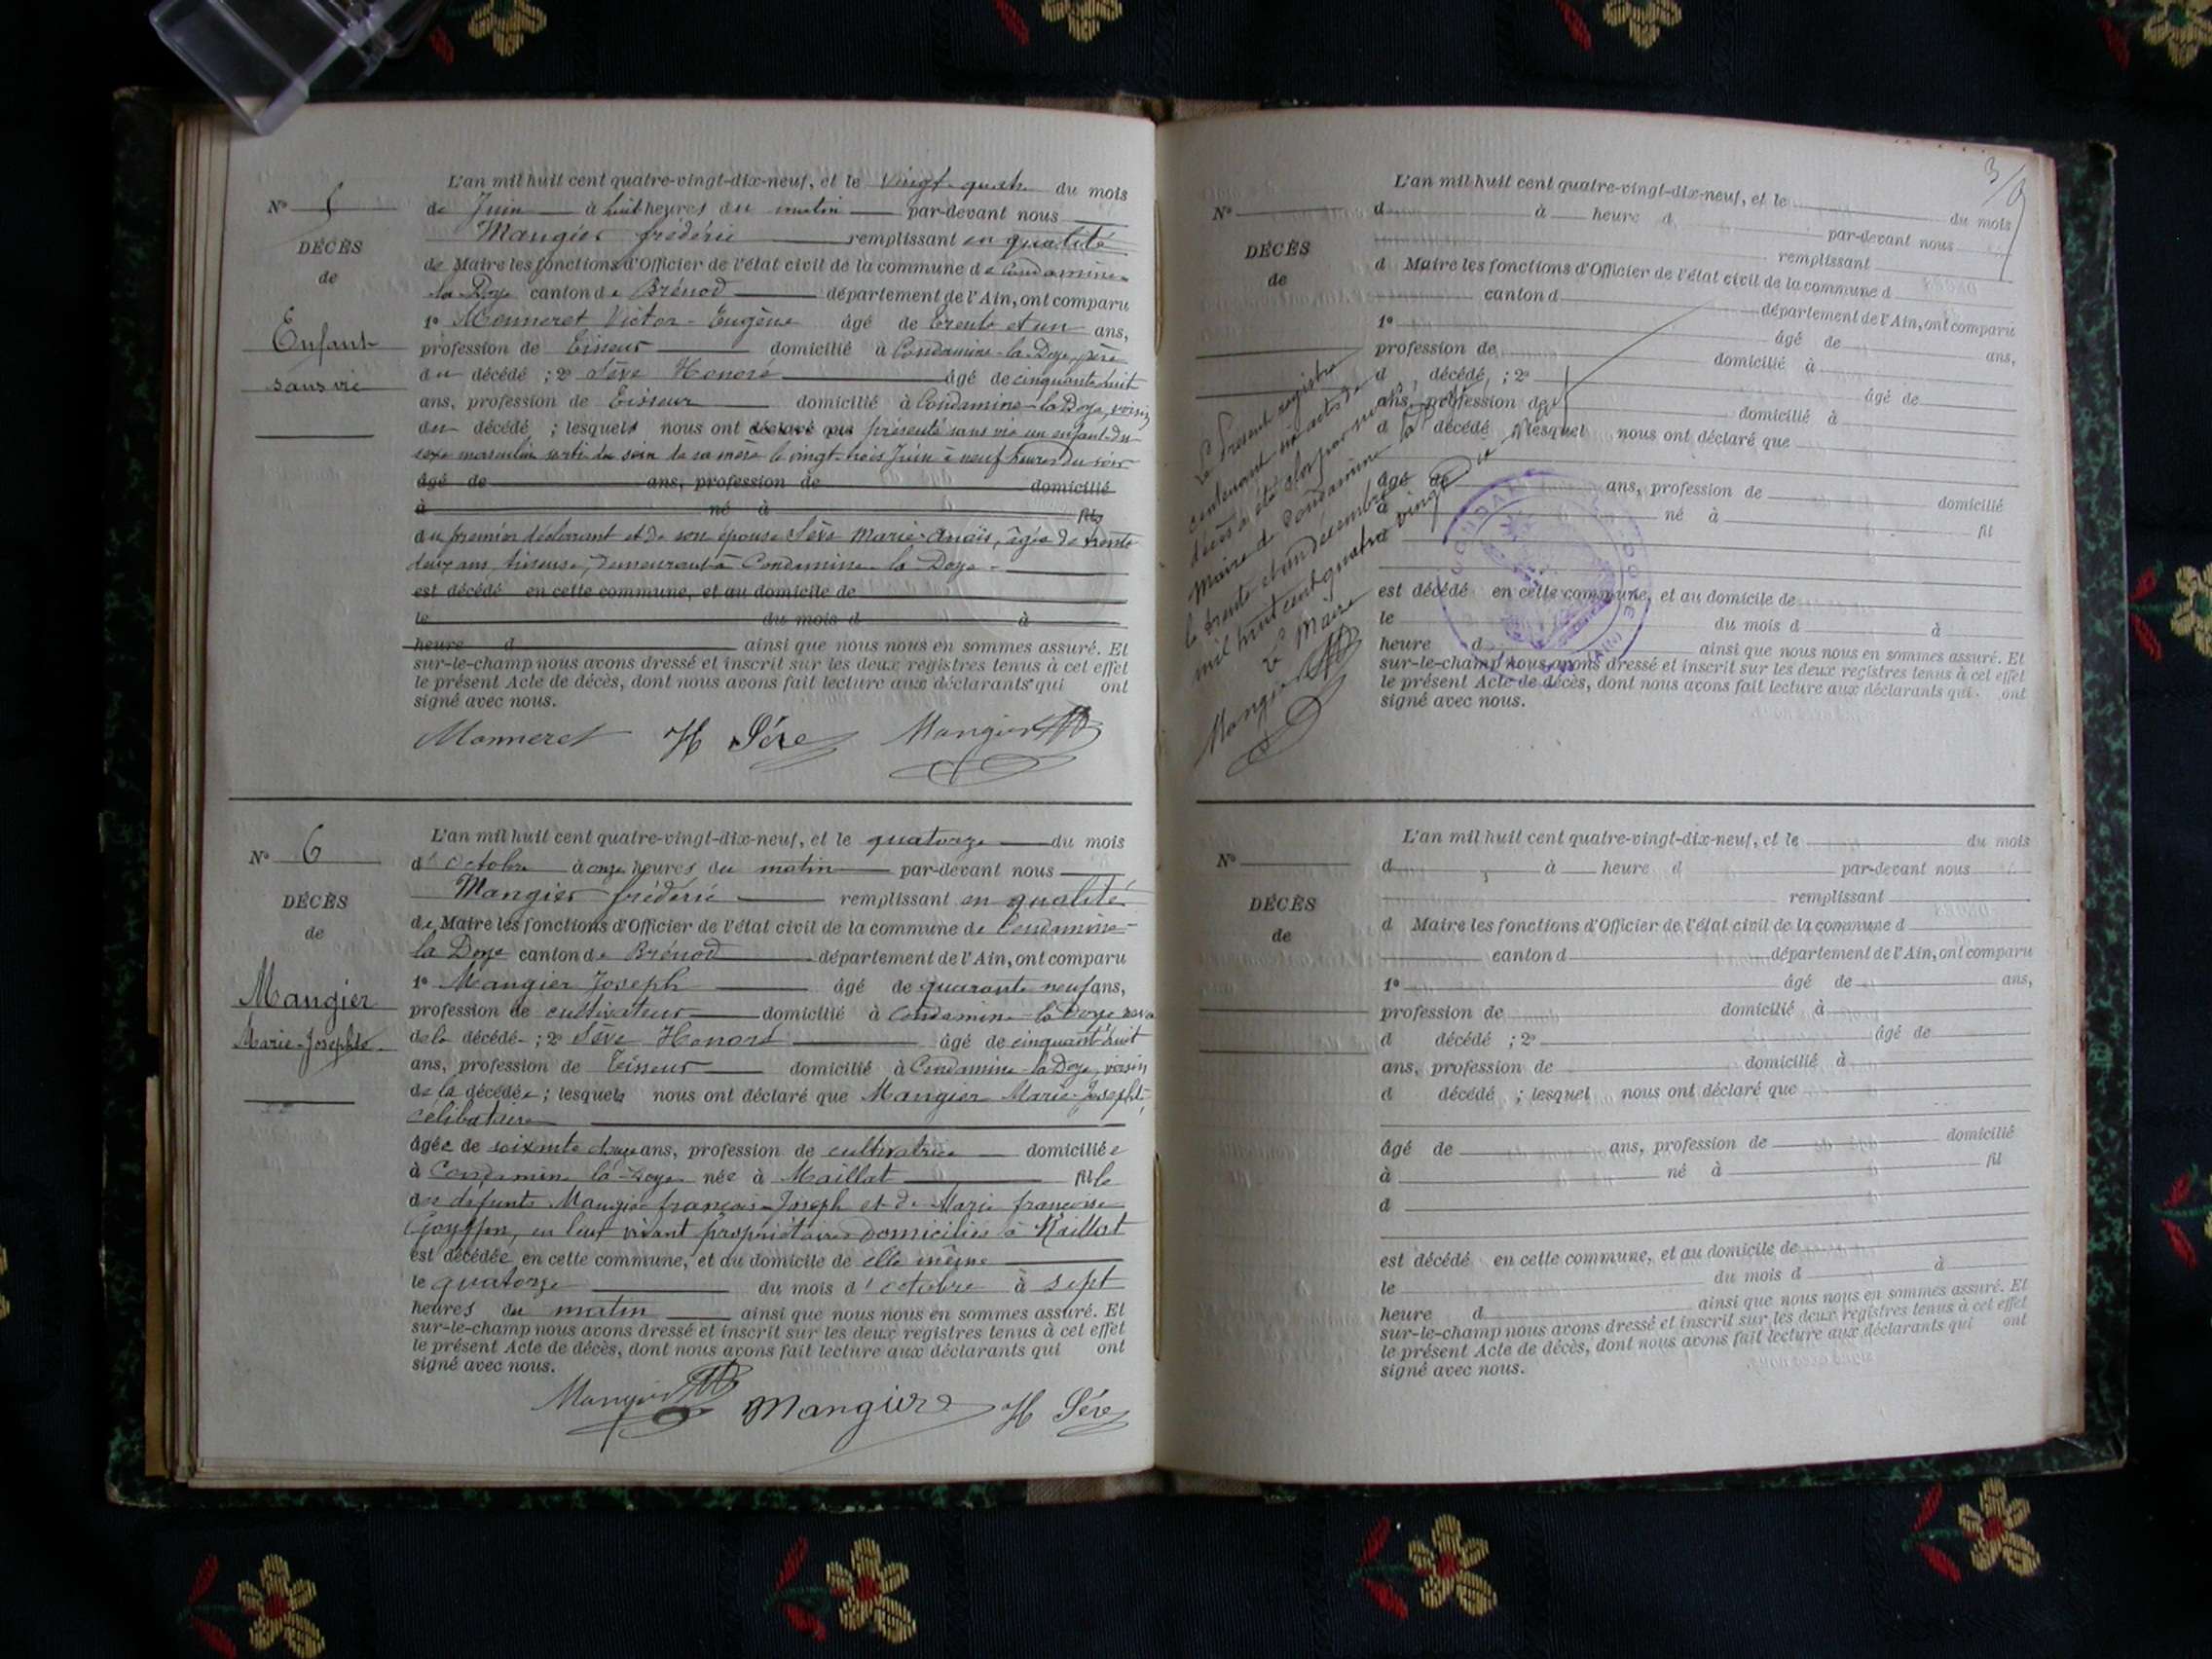 L'an mil huit cent quatre-vingt-dix-neuf, et le vingt-quatre du mois
de Juin à huit heures du matin par-devant nous
Mangier frédéric remplissant en qualité
de Maire les fonctions d'Officier de l'état civil de la commune de Condamine
la Doye canton de Brénod département de l'Ain, ont comparu
1º Monneret Victor-Eugène âgé de trente et un ans,
profession de Tisseur domicilié à Condamine-la-Doye, père
du décédé ; 2º Sève Honoré âgé de cinquante huit
ans, profession de Tisseur domicilié à Condamine-la Doye, voisin
du décédé ; lesquels nous ont déclaré que présenté sans vie un enfant du
sexe masculin sorti du sein de sa mère le vingt-trois Juin à neuf heures du soir
âgé de ans, profession de domicilié
à né à fils
du premier déclarant et de son épouse Sève Marie-Anaïs, âgée de trente
deux ans, tisseuse, demeurant à Condamine la Doye
est décédé en cette commune, et au domicile de
le du mois d à
heure d ainsi que nous nous en sommes assuré. Et
sur-le-champ nous avons dressé et inscrit sur les deux registres tenus à cet effet
le présent Acte de décès, dont nous avons fait lecture aux déclarants qui ont
signé avec nous.
Monneret H Sève Mangier
Nº 5
DÉCÈS
de
Enfant
sans vie
L'an mil huit cent quatre-vingt-dix-neuf, et le quatorze du mois
d'octobre à onze heures du matin par-devant nous
Mangier frédéric remplissant en qualité
de Maire les fonctions d'Officier de l'état civil de la commune de Condamine-
la Doye canton de Brénod département de l'Ain, ont comparu
1º Mangier Joseph âgé de quarante neuf ans,
profession de cultivateur domicilié à Condamine-la Doye
de la décédé ; 2º Sève Honoré âgé de cinquant'huit
ans, profession de Tisseur domicilié à Condamine-la Doye, voisin
de la décédée ; lesquels nous ont déclaré que Mangier Marie-Josephte,
célibataire
âgée de soixante ans, profession de cultivatrice domiciliée
à Condamine la Doye née à Maillat fille
de defunts Mangier françois-Joseph et de Marie françoise
en leur vivant propriétaires domiciliés à Maillat
est décédée en cette commune, et au domicile de elle même
le quatorze du mois d'octobre à sept
heures du matin ainsi que nous nous en sommes assuré. Et
sur-le-champ nous avons dressé et inscrit sur les deux registres tenus à cet effet
le présent Acte de décès, dont nous avons fait lecture aux déclarants qui ont
signé avec nous.
Mangier Mangier H Sève
Nº 6
DÉCÈS
de
Mangier
Marie-Josephte
3/9
L'an mil huit cent quatre-vingt-dix-neuf, et le du mois
d à heure d par-devant nous
remplissant
d Maire les fonctions d'Officier de l'état civil de la commune d
canton d département de l'Ain, ont comparu
1º âgé de ans,
profession de domicilié à
d décédé ; 2º âgé de
ans, profession de domicilié à
d décédé ; lesquel nous ont déclaré que
âgé de ans, profession de domicilié
à né à fil
d
est décédé en cette commune, et au domicile de
le du mois d à
heure d ainsi que nous nous en sommes assuré. Et
sur-le-champ nous avons dressé et inscrit sur les deux registres tenus à cet effet
le présent Acte de décès, dont nous avons fait lecture aux déclarants qui ont
signé avec nous.
Nº
DÉCÈS
de
Le présent registre
contenant six actes de
décès a été clos par nous,
Maire de Condamine la Doye,
le trente et un décembre
mil huit cent quatre vingt dix neuf
Le Maire
Mangier
L'an mil huit cent quatre-vingt-dix-neuf, et le du mois
d à heure d par-devant nous
remplissant
d Maire les fonctions d'Officier de l'état civil de la commune d
canton d département de l'Ain, ont comparu
1º âgé de ans,
profession de domicilié à
d décédé ; 2º âgé de
ans, profession de domicilié à
d décédé ; lesquel nous ont déclaré que
âgé de ans, profession de domicilié
à né à fil
d
est décédé en cette commune, et au domicile de
le du mois d à
heure d ainsi que nous nous en sommes assuré. Et
sur-le-champ nous avons dressé et inscrit sur les deux registres tenus à cet effet
le présent Acte de décès, dont nous avons fait lecture aux déclarants qui ont
signé avec nous.
Nº
DÉCÈS
de